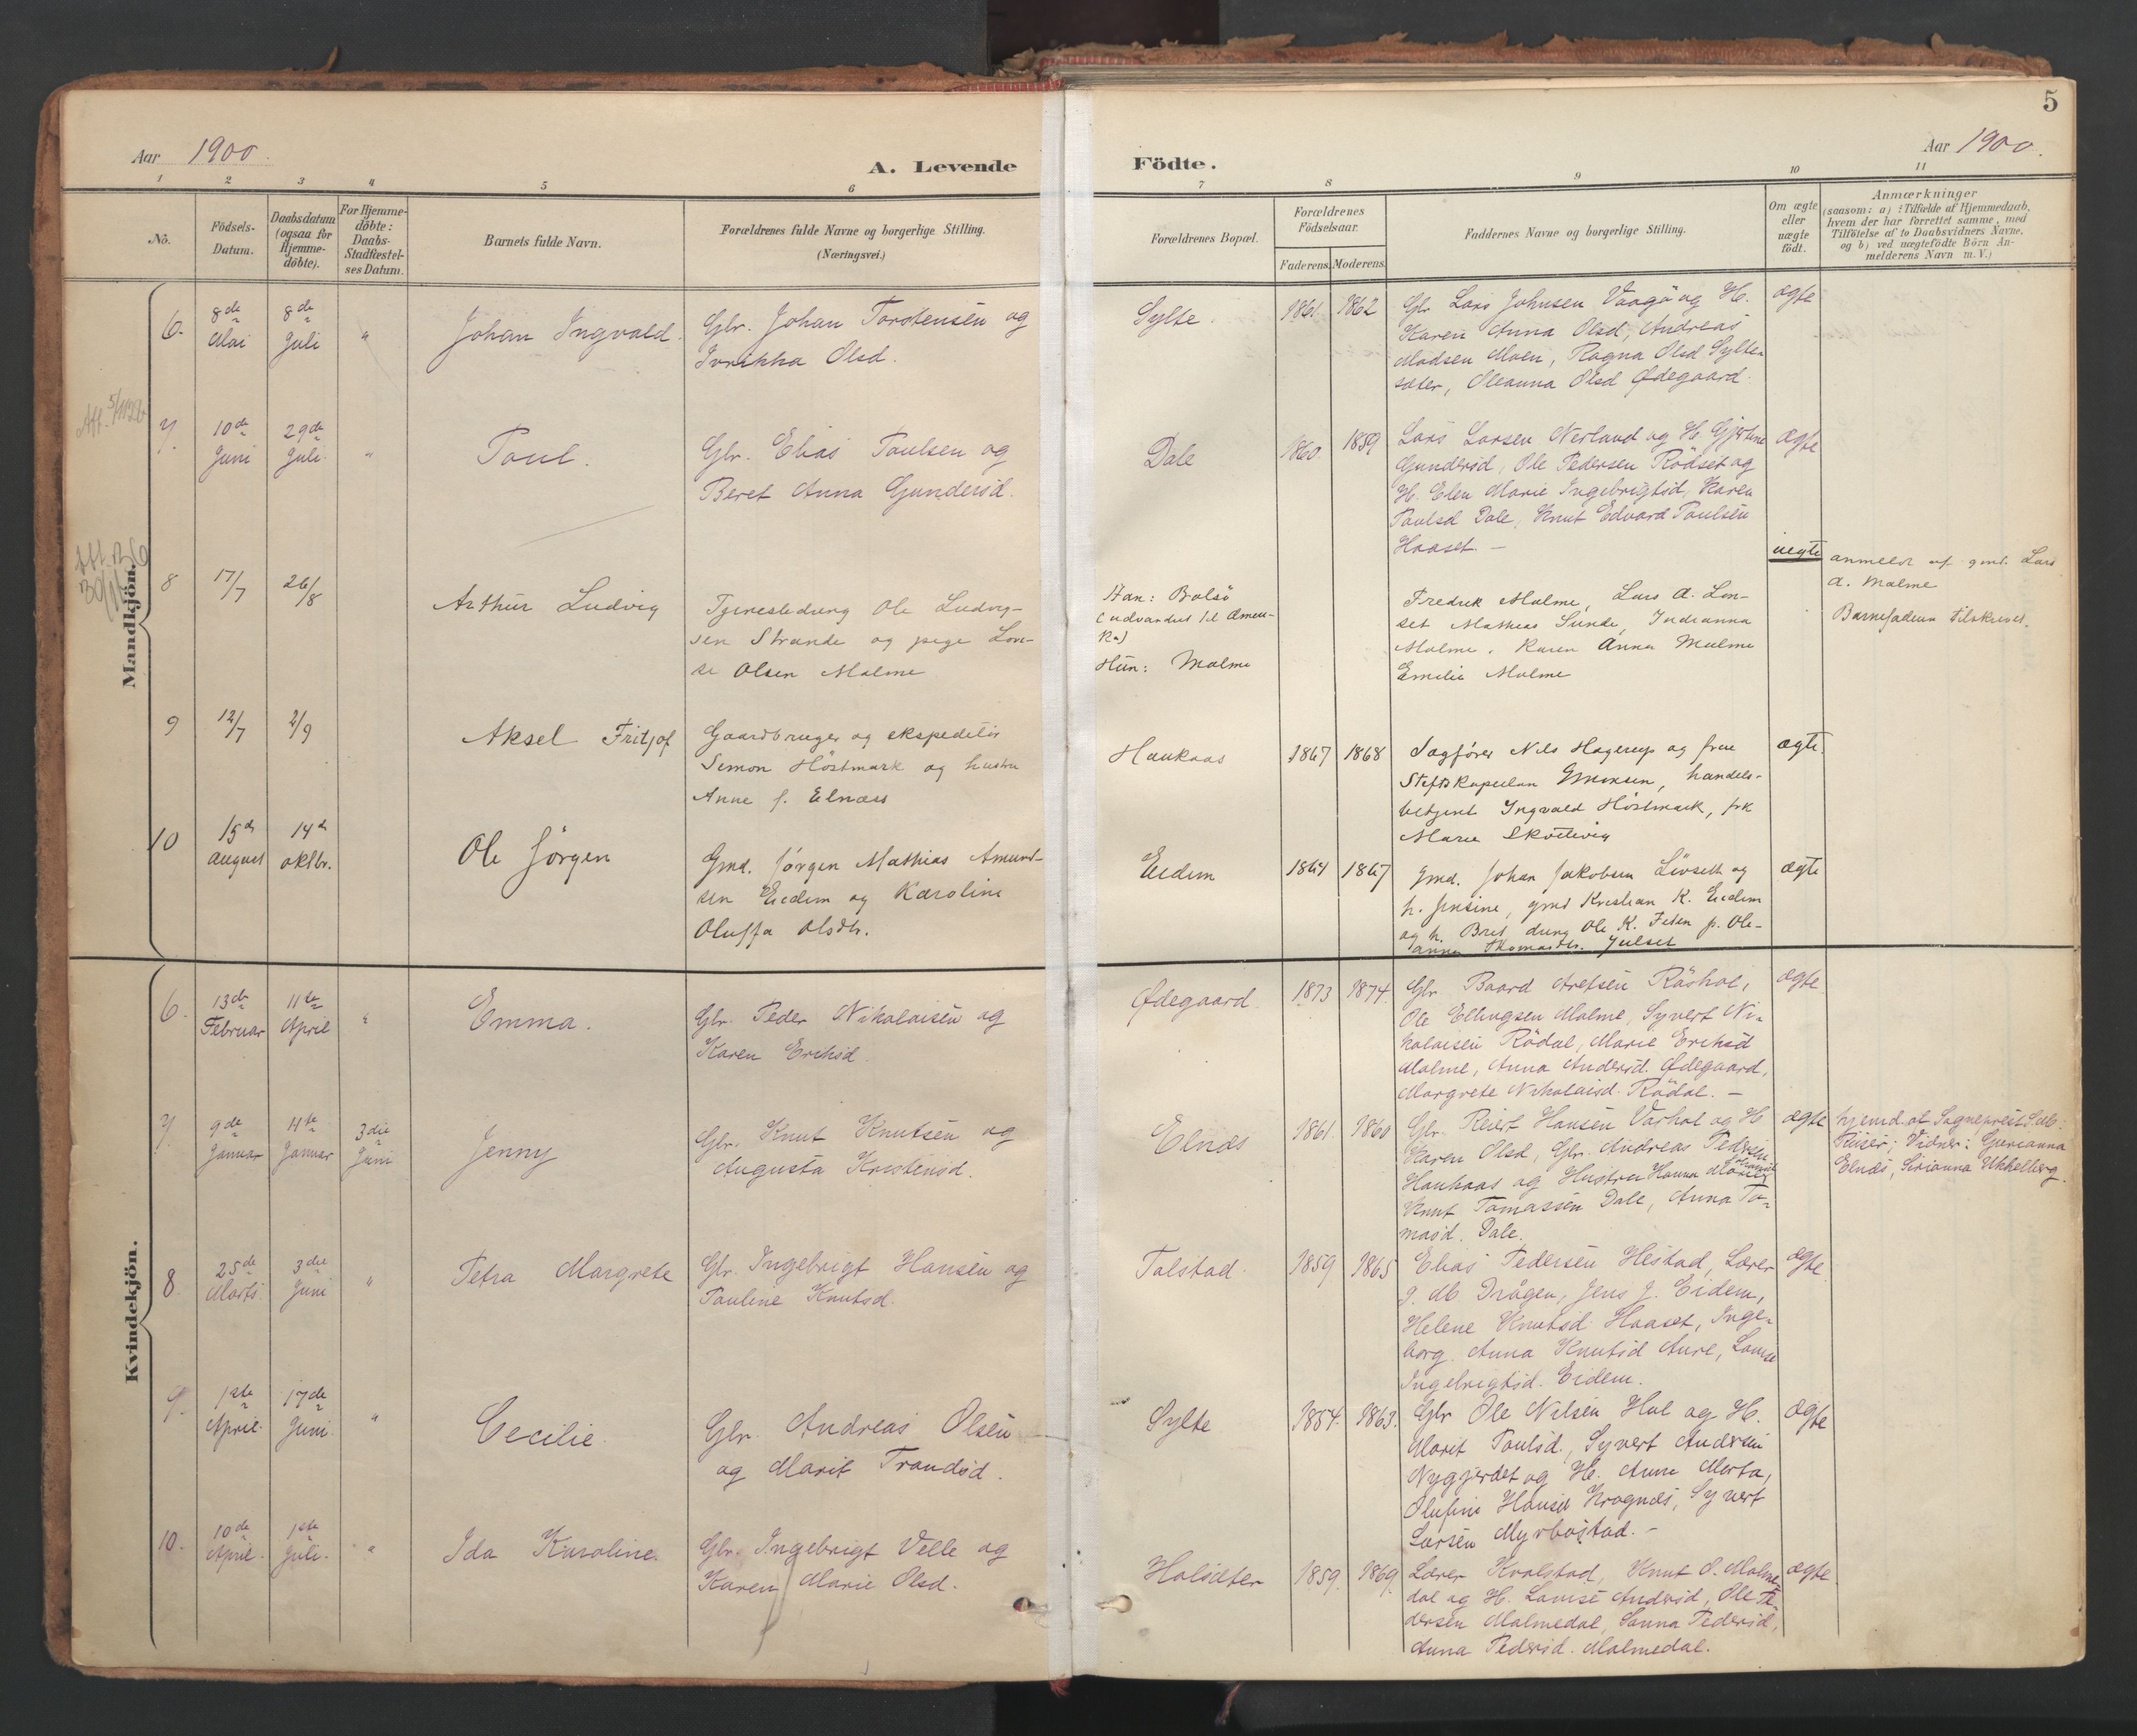 5
Aar 1900.
A. Levende
Födte.
Aar 1900.
1 2 3 4 5 6 7 8 9 10 11
No.
Födsels-
Datum.
Daabsdatum
(ogsaa for
Hjemme-
döbte).
For Hjemme-
döbte:
Daabs-
Stadfæstel-
ses Datum.
Barnets fulde Navn.
Forældrenes fulde Navne og borgerlige Stilling.
(Næringsvei.)
Forældrenes Bopæl.
Forældrenes
Födselsaar.
Faderens. Moderens.
Faddernes Navne og borgerlige Stilling.
Om ægte
eller
uægte
födt.
Anmærkninger
(saasom: a) i Tilfælde af Hjemmedaab,
hvem der har forrettet samme, med
Tilföielse af to Daabsvidners Navne,
og b) ved uægtefödte Börn An-
melderens Navn m. V.)
Mandkjön.
6. 8de Mai 8de Juli " Johan Ingvald.
Gbr. Johan Torstensen og
Olsd.
Sylte. 1861. 1862
Gbr Lars Johnsen Vaagö og H.
Karen Anna Olsd, Andreas
Madsen Moen, Ragna Olsd Sylte-
sæter, Oleanna Olsd Ødegaard.
ægte
7. 10de Juni 29de Juli. " Paul.
Gbr. Elias Paulsen og
Beret Anna Gundersd.
Dale 1860. 1859
Lars Larsen Nerland og H. Gjertine
Gundersd, Ole Pedersen Rödset og
H. Elen Marie Ingebrigtsd, Karen
Paulsd Dale, Knut Edvard Paulsen
Haaset. –
ægte
8 17/7 26/8 Arthur Ludvig
Tjenestedreng Ole Ludvig-
sen Strande og pige Lou-
se Olsen Malme
Han: Bolsö
(udvandret til Ameri-
ka)
Hun: Malme
Fredrik Malme, Lars A. Lon-
set Mathias Sunde,
Malme. Karen Anna Malme
Emilie Malme
uægte
anmeldt af gmd. Lars
A. Malme
Barnefaderen tilskrevet.
9 12/7 2/9 Aksel Fritjof
Gaardbruger og ekspeditör
Simon Höstmark og hustru
Anne f. Elnæs
Haukaas 1867 1868
Sagförer Nils Hagerup og frue
Stiftskapellan, handels-
betjent Ingvald Höstmark, frk
Marie
ægte.
10 15de august 14de oktbr. Ole Jörgen
Gmd. Jörgen Mathias Amund-
sen Eidem og Karoline
Oluffa Olsdtr.
Eidem 1864 1867
Gmd. Johan Jakobsen Lövseth og
h. Jensine, gmd Kristian K. Eidem
og h. Brit, dreng Ole K. p. Ole-
anna Thomasdtr. Julset
ægte
Kvindekjön.
6. 13de Februar 11te April " Emma.
Gbr. Peder Nikolaisen og
Karen Eriksd.
Ødegaard. 1873 1874.
Gbr. Baard Aretsen Råshol,
Ole Ellingsen Malme, Syvert Ni-
kolaisen Rödal, Marie Eriksd
Malme, Anna Andersd. Ødegaard,
Margrete Nikolaisd. Rödal. –
ægte
7 9de Januar 11te Januar 3die Juni Jenny
Gbr. Knut Knutsen og
Augusta Kristensd.
Elnæs 1861 1860
Gbr. Reiert Hansen Varhol og H
Karen Olsd, Gbr. Andreas Pedersen
Haukaas og Hustru Hanna
Knut Tomassen Dale, Anna To-
masd. Dale.
ægte
hjemd. af Sogneprest
Vidner: Gurianna
Elnæs, Sirianna Ukkelberg.
8. 25de Marts. 3die Juni " Petra Margrete
Gbr. Ingebrigt Hansen og
Pauline Knutsd.
Talstad. 1859 1865
Elias Pedersen Hestad, Lærer
P. M Drågen, Jens J. Eidem,
Helene Knutsd Haaset, Inge-
borg Anna Knutsd Aure, Louise
Ingebrigtsd. Eidem.
ægte
9. 1ste April. 17de Juni. " Cecilie.
Gbr. Andreas Olsen
og Marit Trondsd.
Sylte 1854. 1863.
Gbr Ole Nilsen Hol og H.
Marit Paulsd., Syvert Andersen
Nygjerdet og H. Anne Merta,
Olufine Hansd Krognæs, Syvert
Larsen Myrbostad. –
ægte
10. 10de April. 1ste Juli. " Ida Karoline.
Gbr. Ingebrigt Velle og
Karen Marie Olsd.
Holsæter 1859. 1869.
Lærer Kvalstad, Knut O. Malme-
dal og H. Louise Andersd, Ole Pe-
dersen Malmedal, Sanna Pedersd,
Anna Pedersd. Malmedal.
ægte